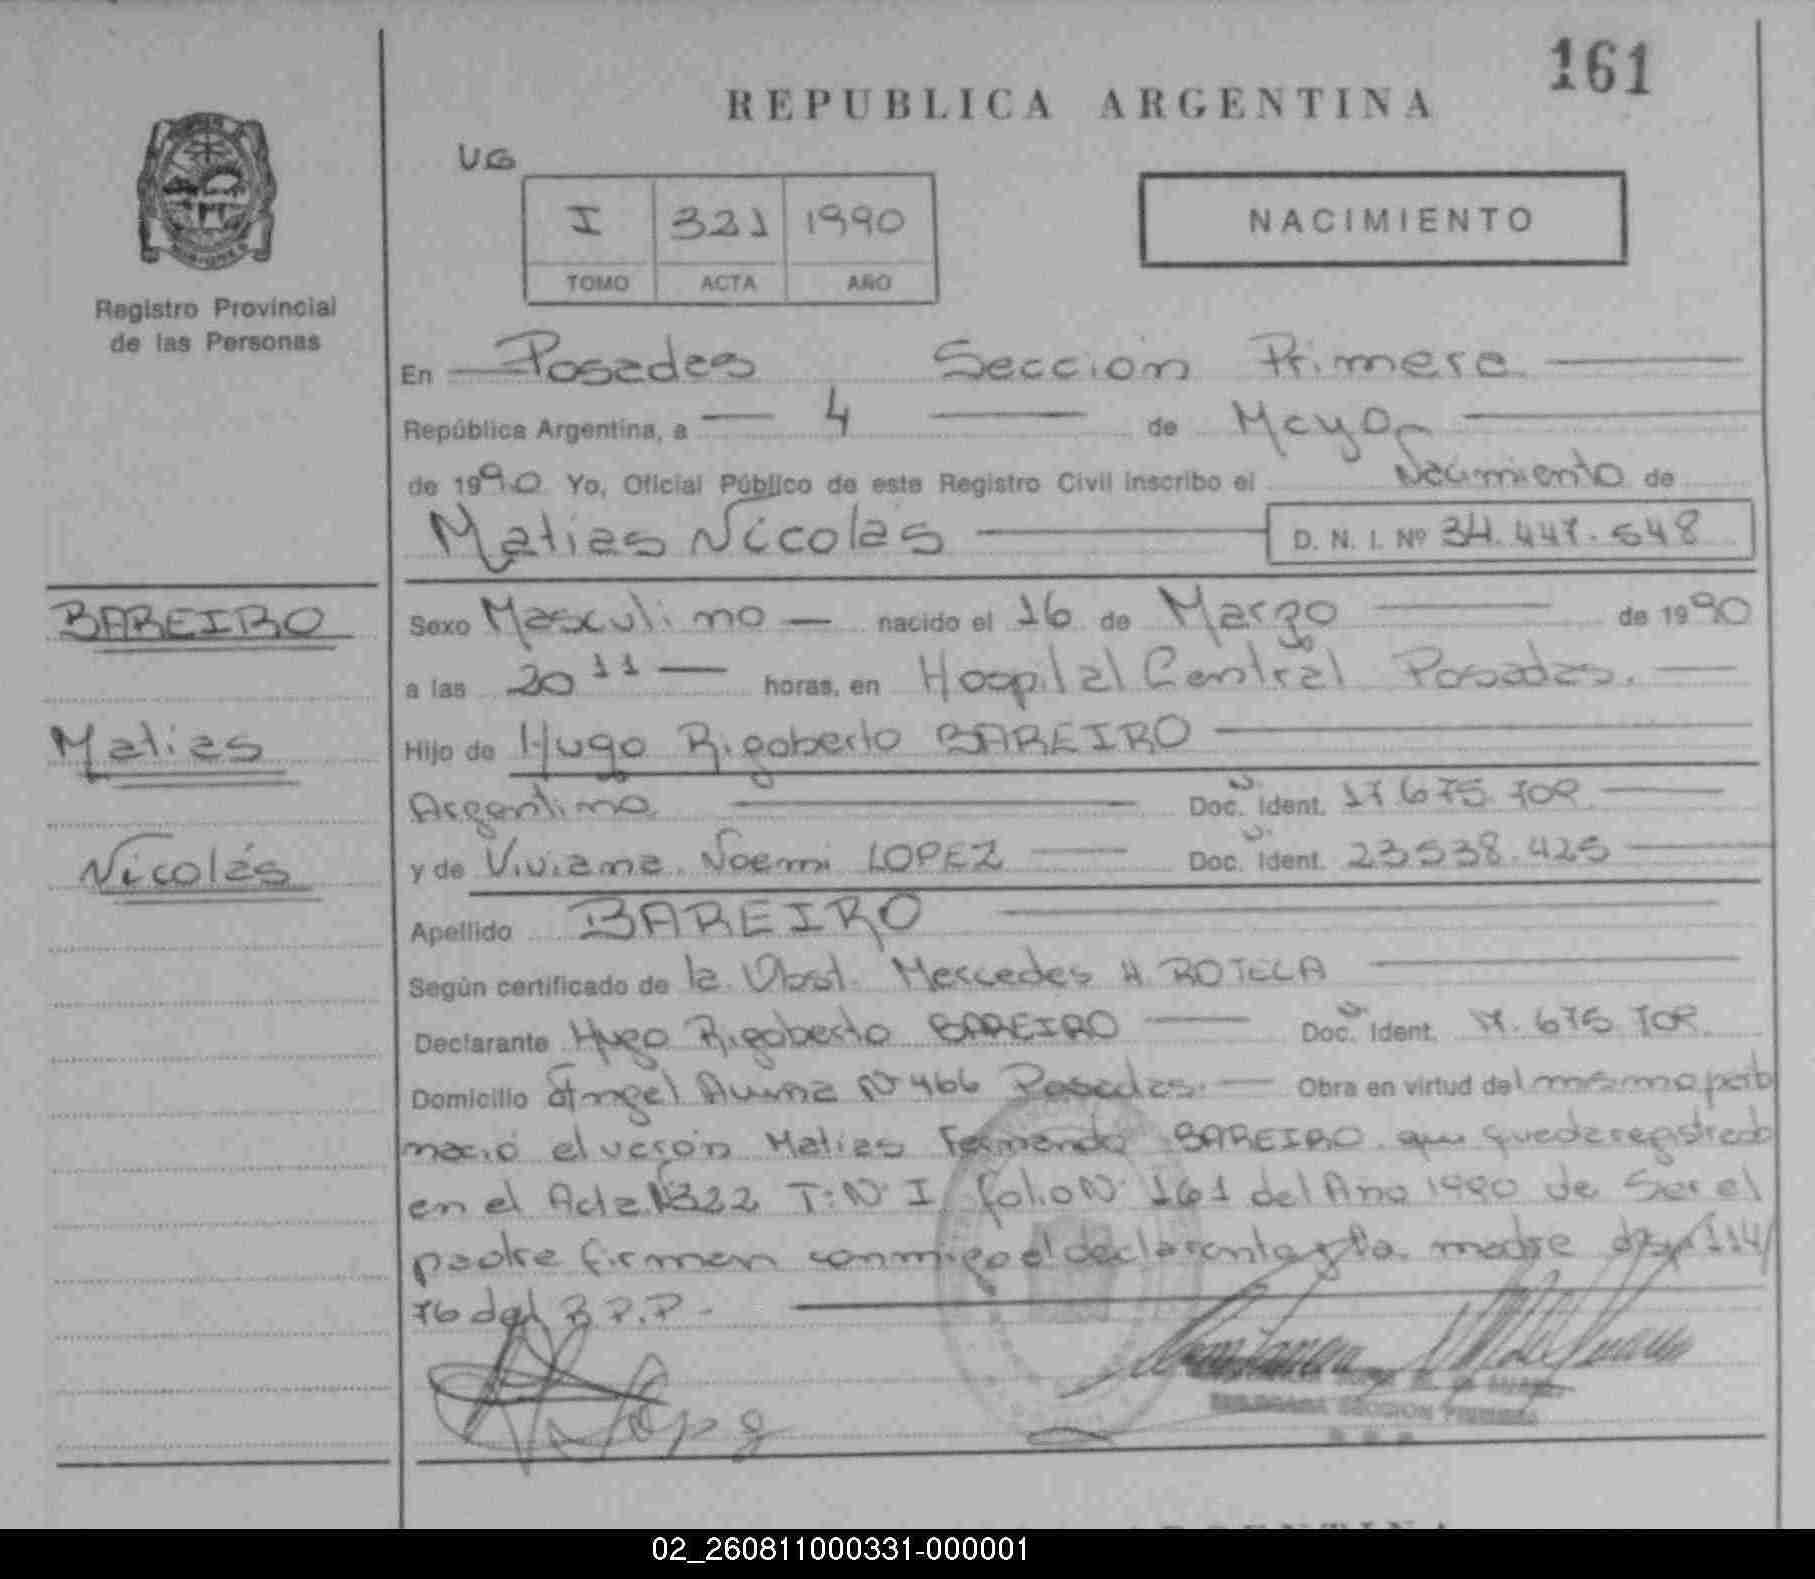 161
REPUBLICA ARGENTINA
UG
I 321 1990
TOMO ACTA AÑO
NACIMIENTO
Registro Provincial
de las Personas
En Posadas Sección Primera
República Argentina, a 4 de Mayo
de 1990 Yo, Oficial Público de este Registro Civil inscribo el Nacimiento de
Matias Nicolás D. N. I. Nº 34.447.548
BAREIRO
Matias
Nicolás
Sexo Masculino nacido el 16 de Marzo de 1990
a las 20 11 horas, en Hospital Central Posadas.
Hijo de Hugo Rigoberto BAREIRO
Argentino Doc. Ident. 17.675.
y de Viviana Noemi LOPEZ Doc. Ident. 23538.425
Apellido BAREIRO
Según certificado de la Obst. Mercedes H. ROTELA
Declarante Hugo Rigoberto BAREIRO Doc. Ident. 17.675.
Domicilio Angel Nº 466 Posadas. Obra en virtud del mismo parto
nació el varón Matias Fernando BAREIRO que queda registrado
en el Acta Nº 322 T: Nº I folio Nº 161 del Año 1990 de Ser el
padre firman conmigo el declarante y la madre
76 del R.P.P.
DELEGADA SECCION PRIMERA
02_260811000331-000001